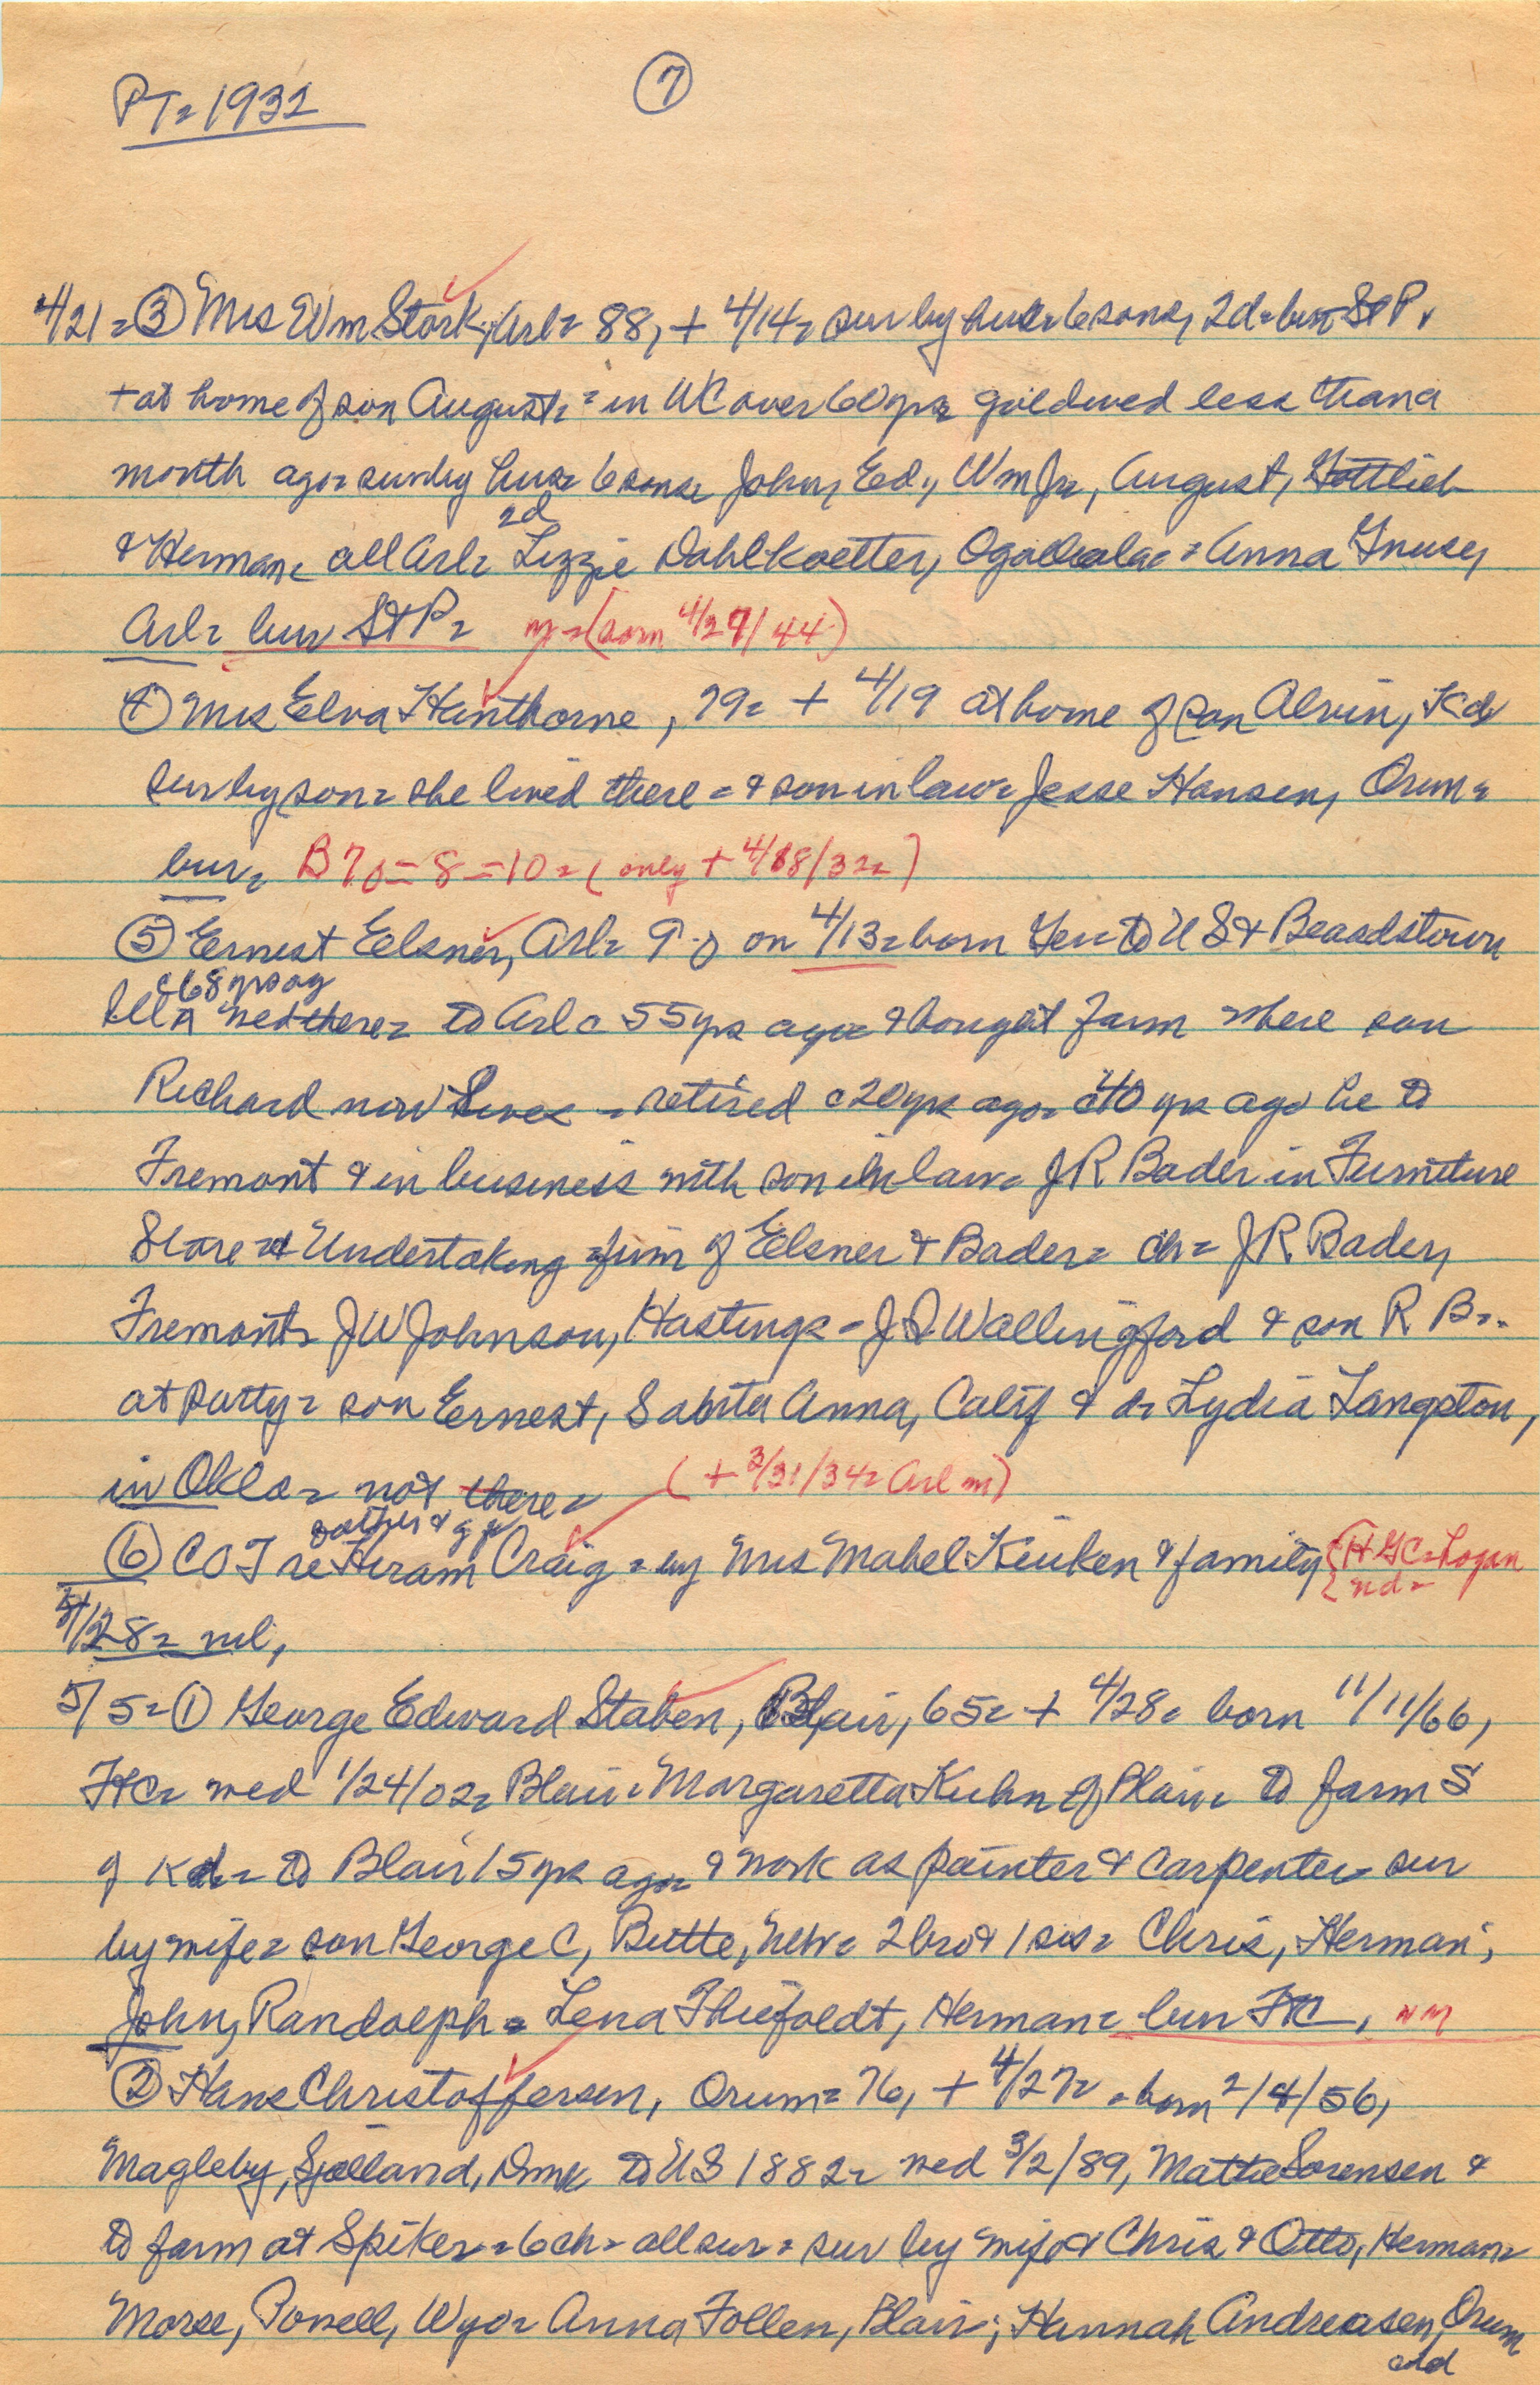 PT= 1932
7
4/21= ③ Mrs Wm Stork, Arl= 88, + 4/14= sur by hus= 6 sons, 2d= bur St P.
+ at home of son August= in WC over 60 yrs= gold wed less than a
month ago= sur by hus= 6 sons= John, Ed., Wm Jr, August, Gottlieb
2d
& Herman= all Arl= Lizzie Dahlkoetter, Ogallala= Anna Gnuse,
Arl= bur St P= (born 4/27/44)
④ Mrs Elva Hawthorne, 79= + 4/19 at home of son Alvin, Kd
sur by son= she lived there= & son in law= Jesse Hansen, Orum=
bur= B70=8=10= (only + 4/18/32=)
⑤ Ernest Eelsner, Arl= 90 on 4/13= born Ger= to US & Beardstown
c68 yrs ag
Ill wed there= to Arl c 55 yrs ago= & bought farm where son
Richard now lives= retired c20 yrs ago= c40 yrs ago he to
Fremont & in business with son in law= J R Bader in Furniture
Store & Undertaking= firm of Eelsner & Bader= ch= J R Bader,
Fremont= J W Johnson, Hastings= J D Wallingford & son R B=.
at party= son Ernest, Santa Anna, Calif & d= Lydia Langston,
in Okla= not there= (+ 3/31/34= Arl m)
father & g fa
⑥ COT re Hiram Craig= by Mrs Mabel Keuken & family {H GC= Logan
{nd=
4/28= nil,
5/5= ① George Edward Staben, Blair, 65= + 4/28= born 11/11/66,
FtC= wed 1/24/02= Blair= Margaretta Kuhn of Blair= to farm S
of Kd= to Blair 15 yrs ago= & work as painter & carpenter= sur
by wife= son George C, Butte, Neb= 2 bro & 1 sis= Chris, Herman;
John, Randolph= Lena Thiefoldt, Herman= bur FtC, NM
② Hans Christoffersen, Orum= 76, + 4/27= born 2/4/56,
Magleby, Sjelland, Dmk to US 1882= wed 3/2/89, Mattie Sorensen &
to farm at Spiker= 6 ch= all sur= sur by wife & Chris & Otto, Herman=
Morse, Powell, Wyo= Anna Follen, Blair; Hannah Andreasen, Orum